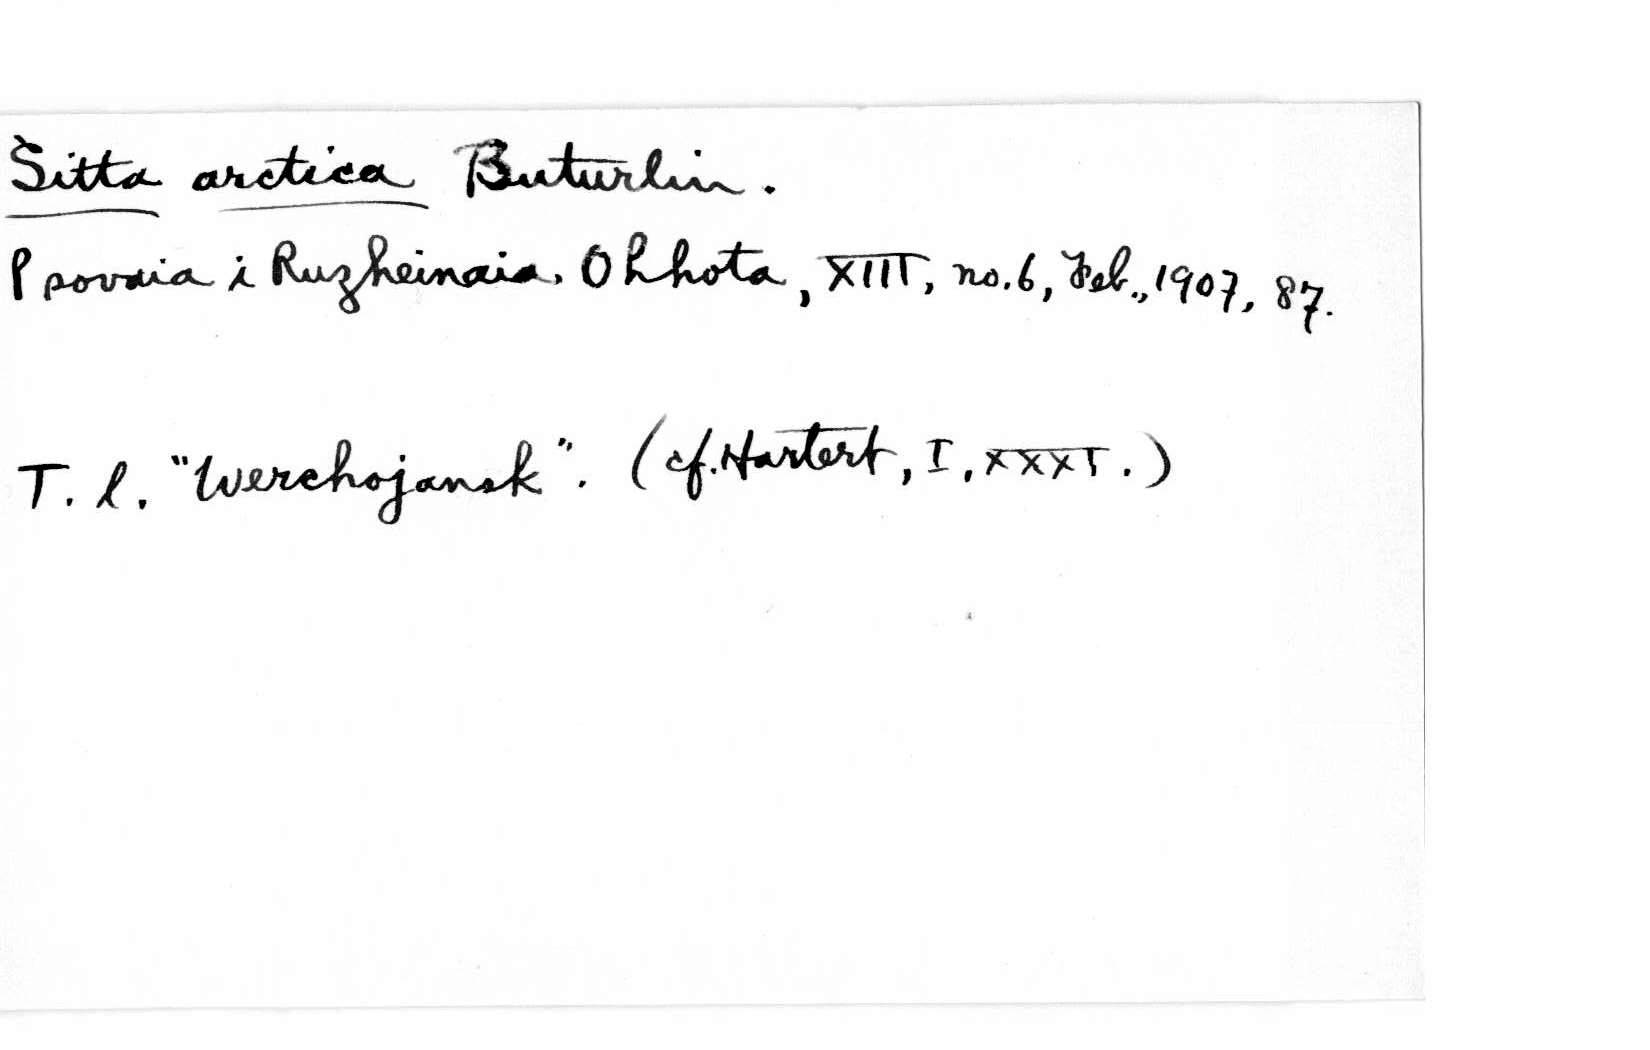 Sitta arctica Buturlin.
Psovaia i Ruzheinaia. Okhota, XIII, no. 6, Feb., 1907, 87.
T. l. "Werchojansk". (cf. Hartert, I, XXXI.)